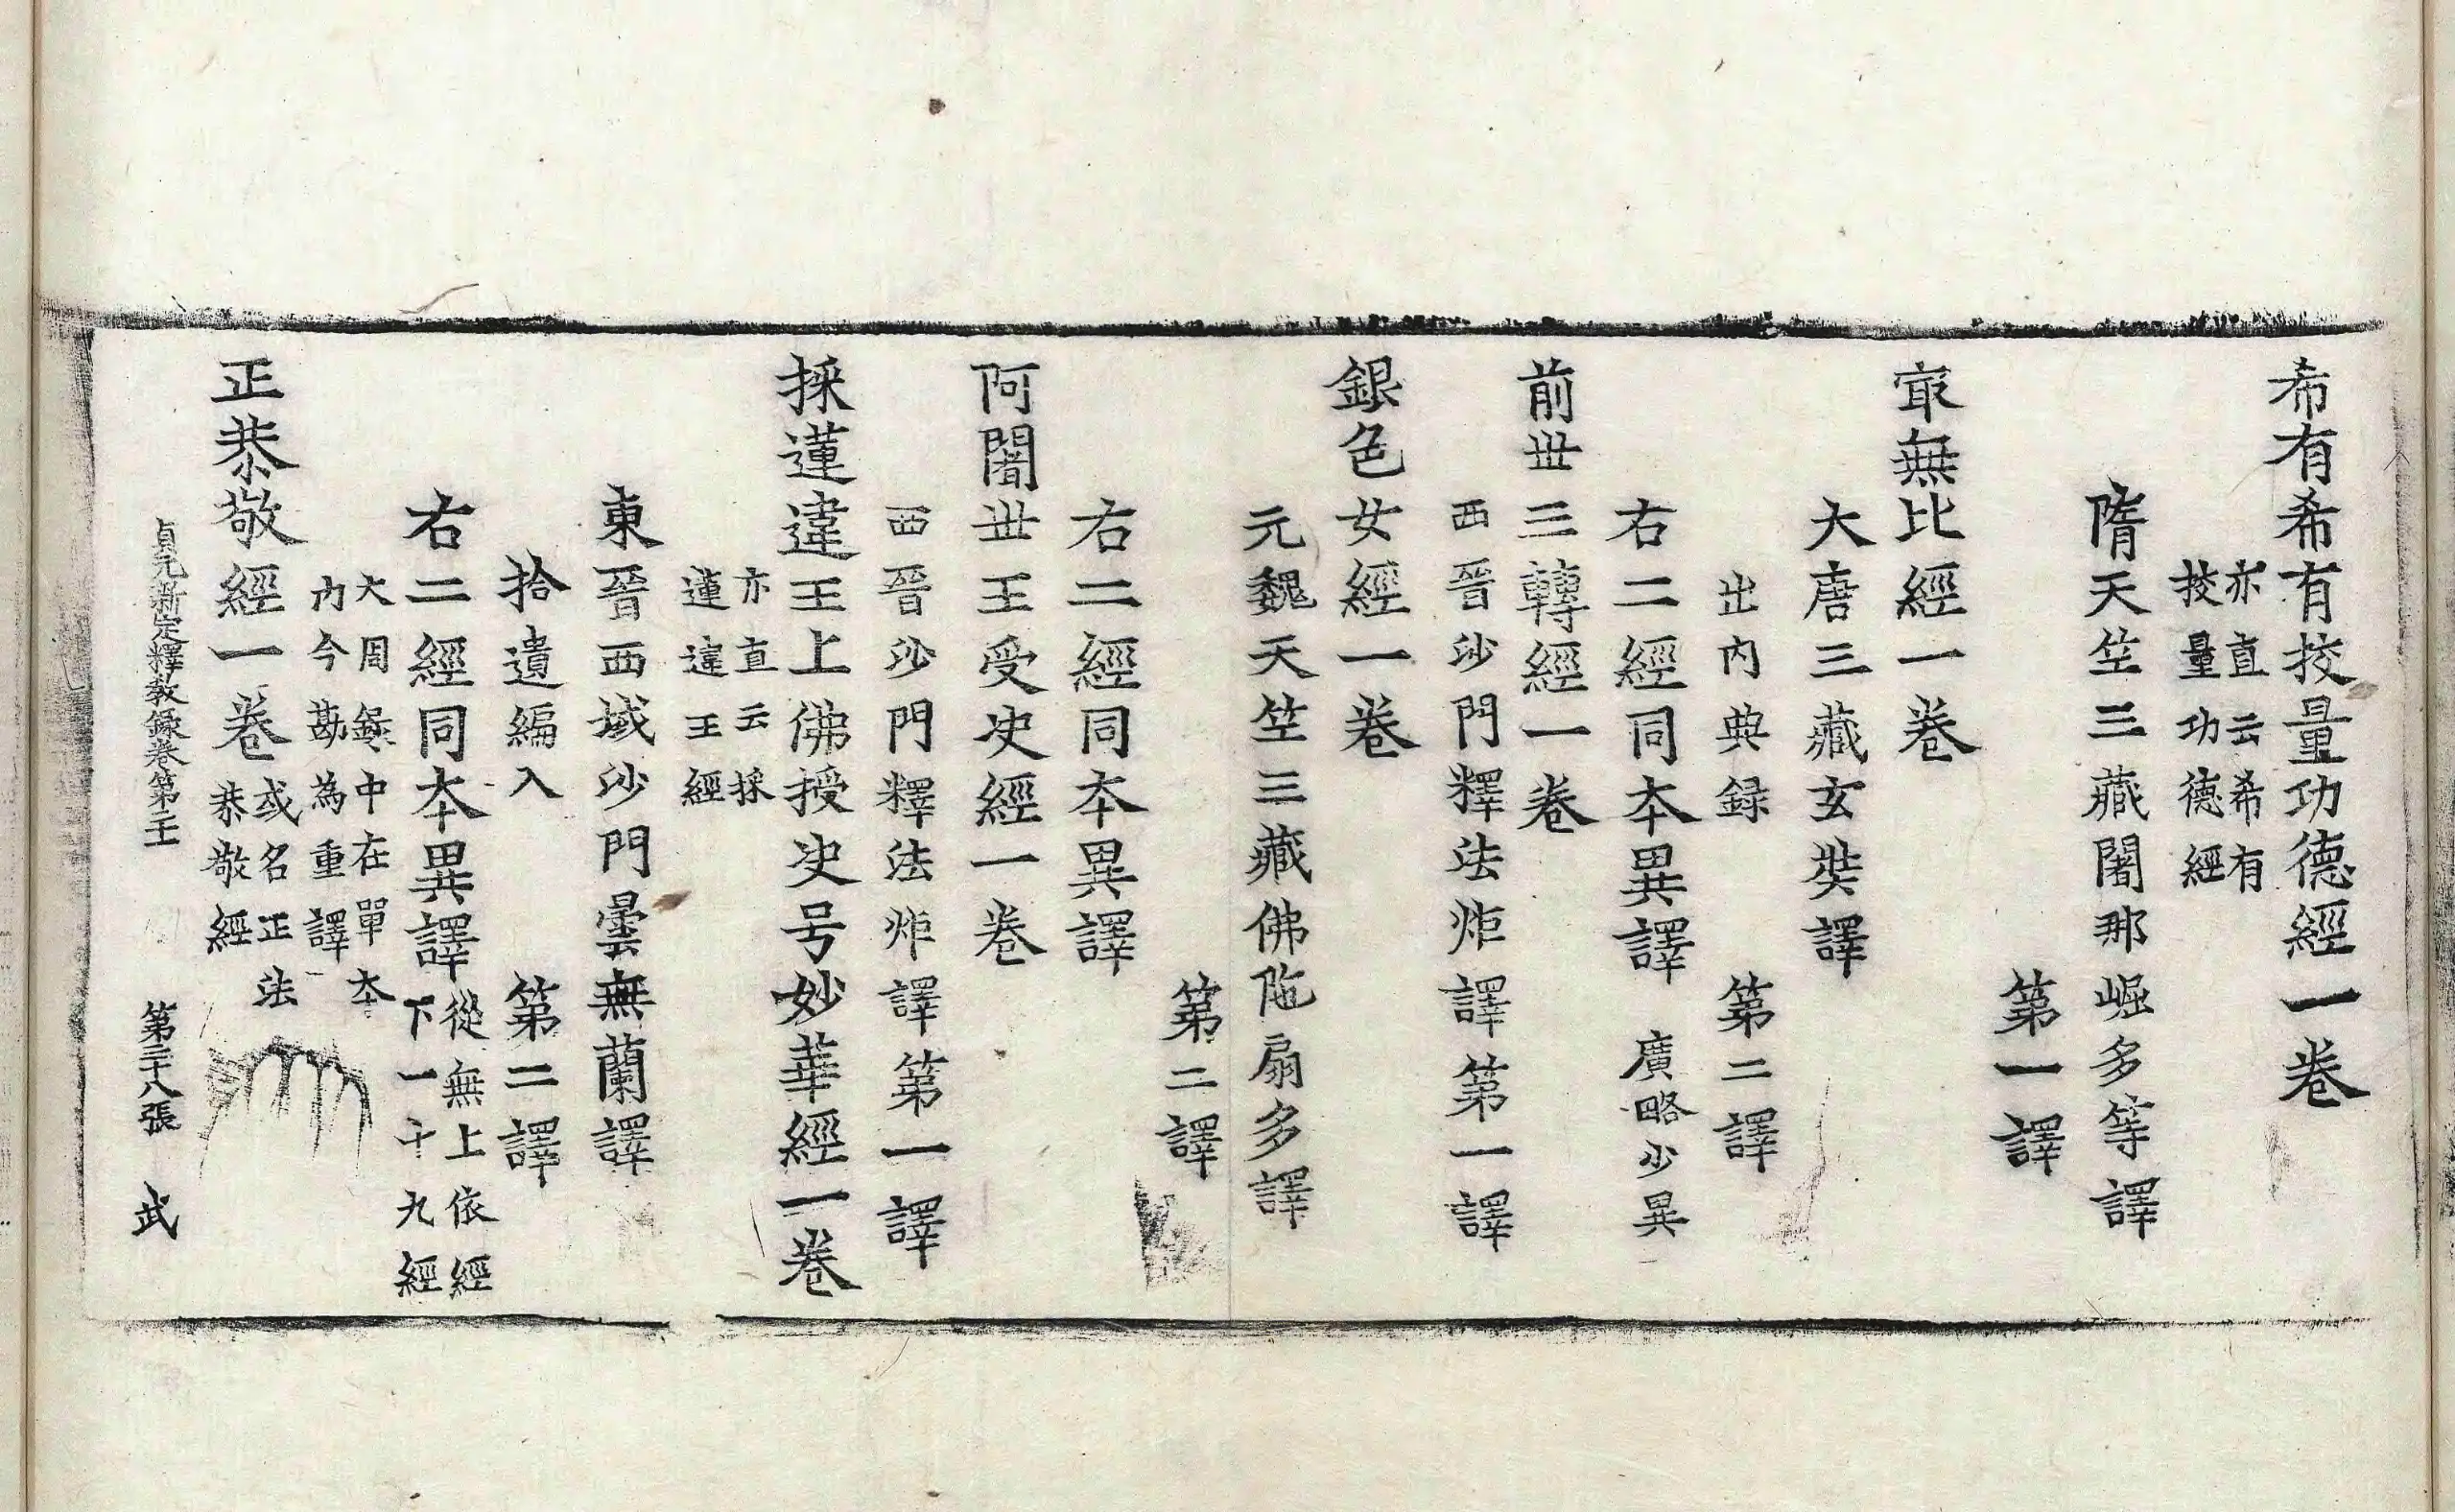 希有希有挍量功德經一卷
亦直云希有
挍量功德經
隋天笁三藏闍那崛多等譯
第一譯
㝡無比經一卷
大唐三藏玄奘譯
出內典録　第二譯
右二經同夲異譯　廣略少異
前丗三轉經一卷
西晉沙門釋法炬譯第一譯
銀色女經一卷
元魏天笁三藏佛陁扇多譯
第二譯
右二經同夲異譯
阿闍丗王受决經一卷
西晉沙門釋法炬譯第一譯
採蓮違王上佛授决号妙華經一卷
亦直云採
蓮違王經
東晉西域沙門曇無蘭譯
拾遺編入　第二譯
右二經同夲異譯
從無上依經
下一十九經
大周錄中在單夲
內今勘為重譯
正恭敬經一卷
或名正法
恭敬經
貞元新定釋教錄卷第二十　第二十八張　武